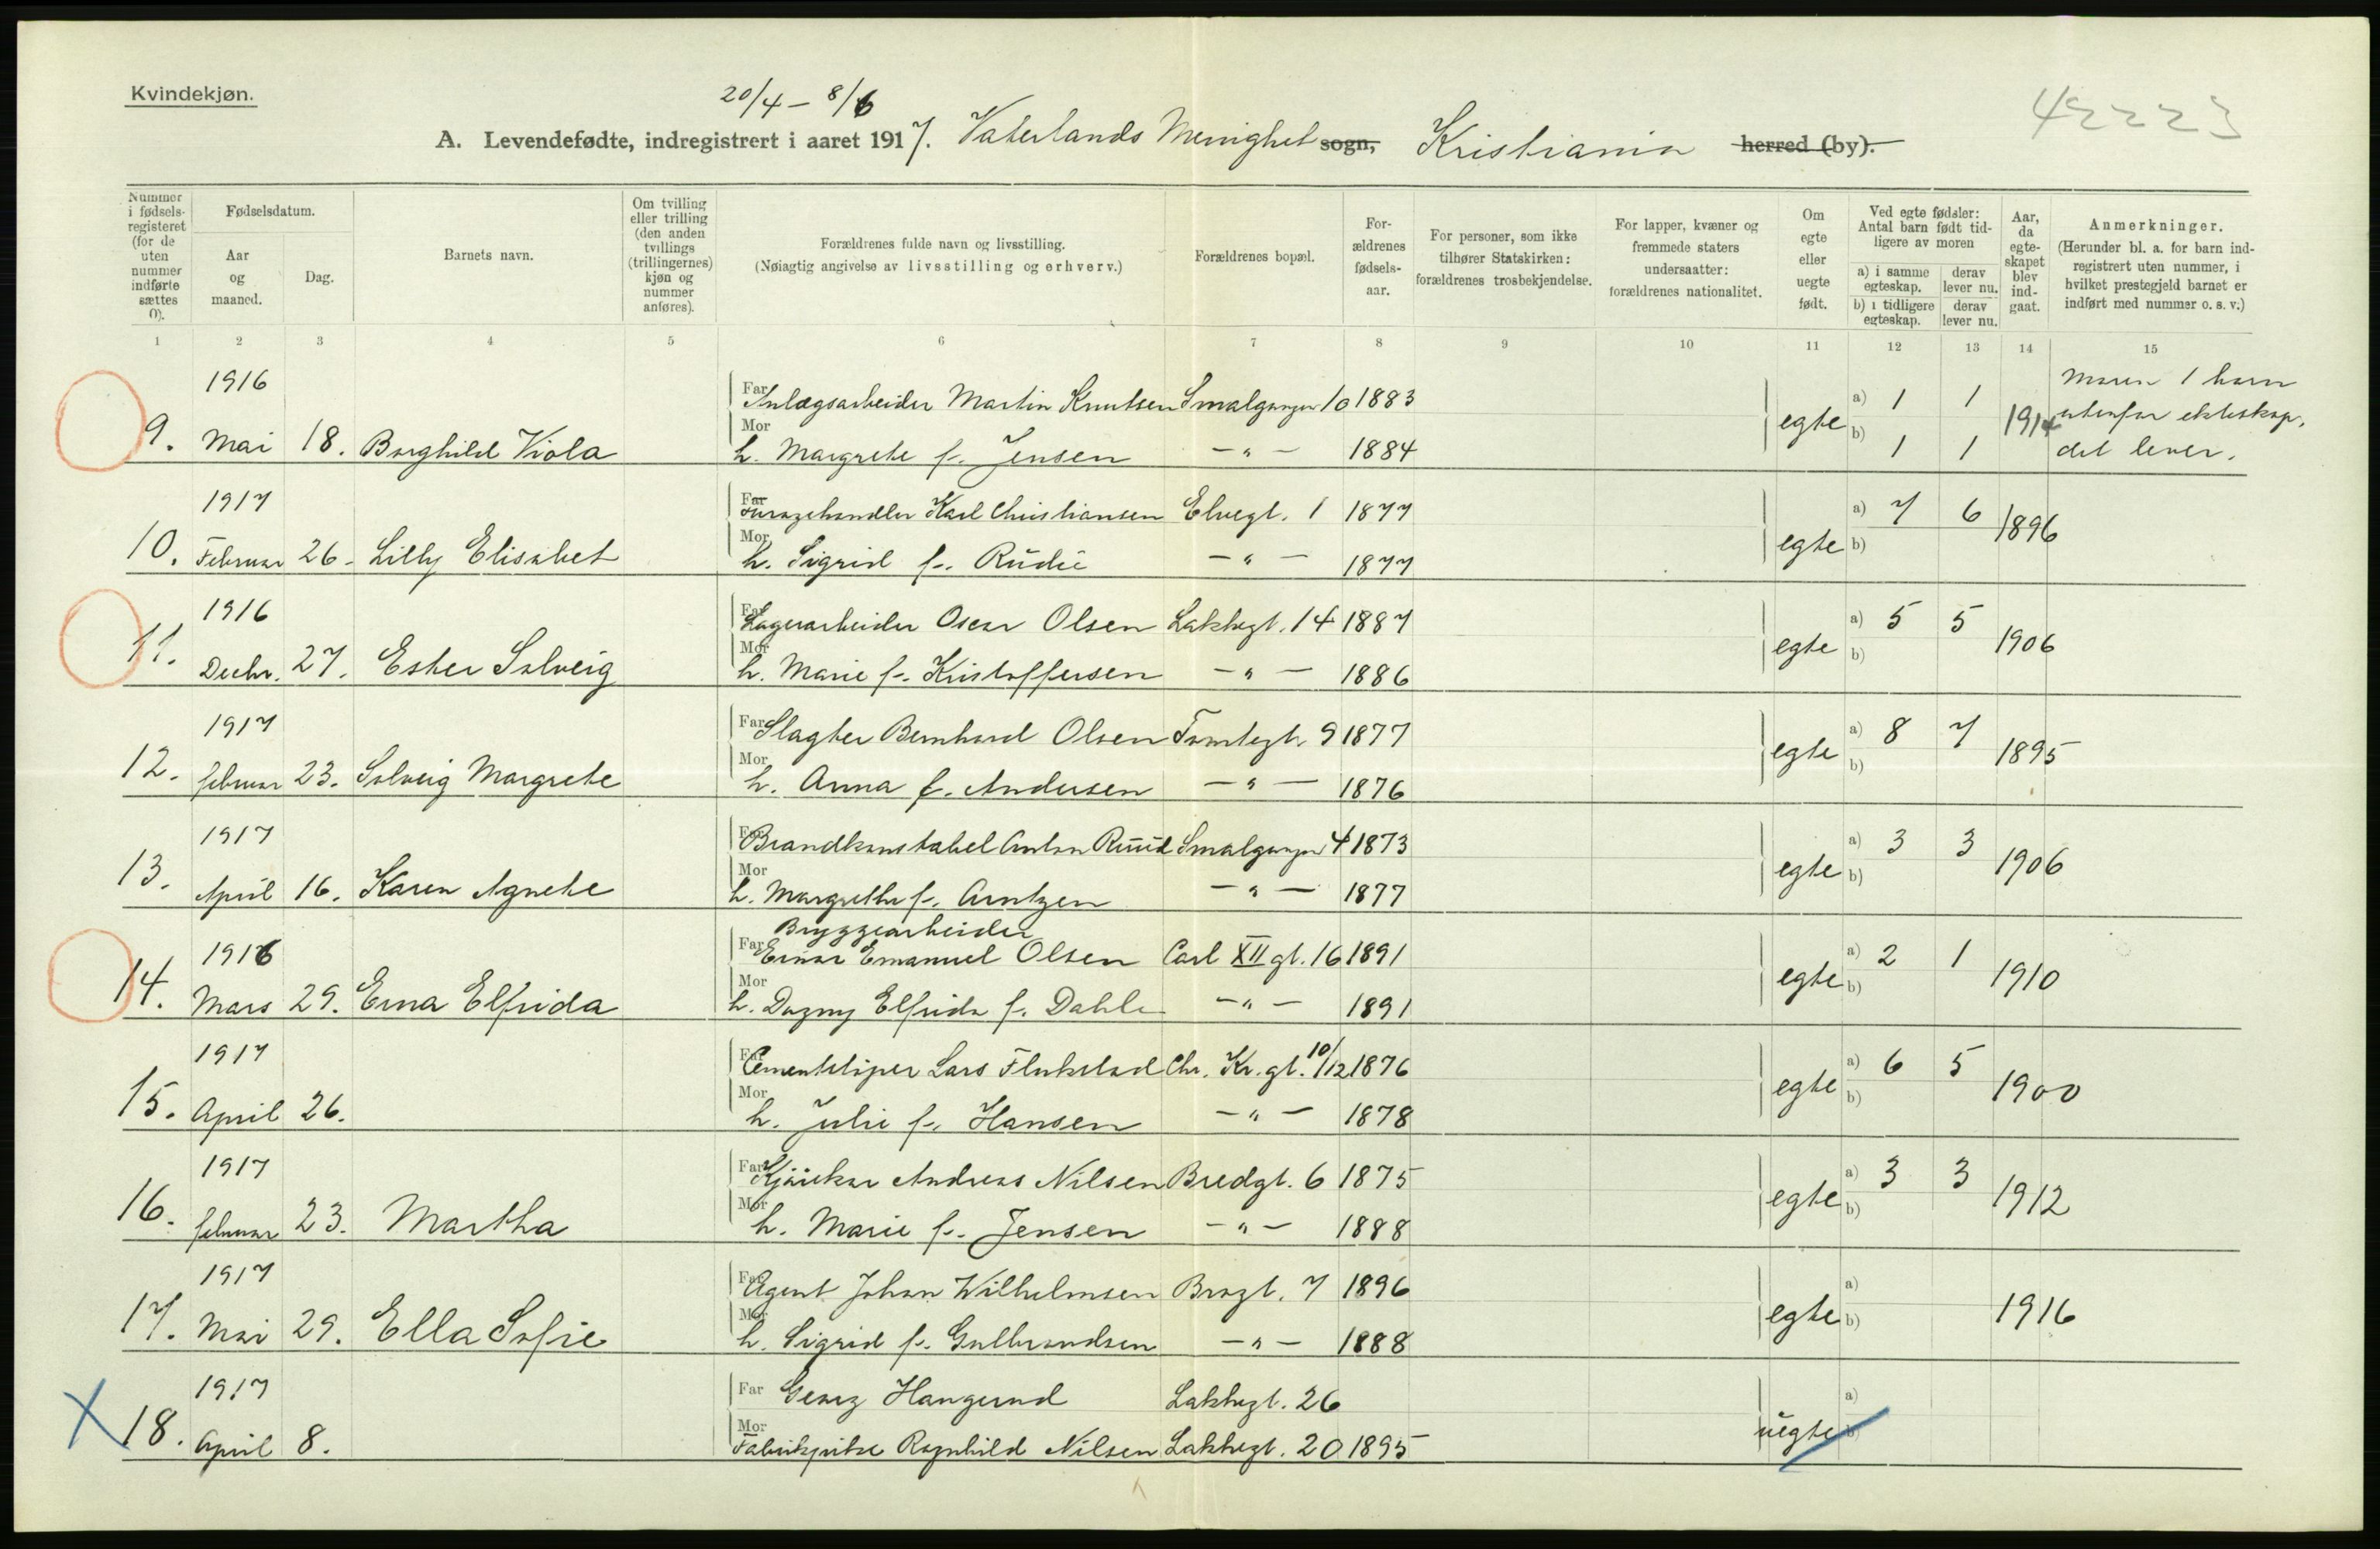 Kvindekjøn.
20/4 – 8/6
42223
A. Levendefødte, indregistrert i aaret 1917. Vaterlands Menighet sogn, Kristiania herred (by).
Nummer i fødselsregisteret (for de uten nummer indførte sættes 0).
Fødselsdatum.
Aar og maaned.
Dag.
Barnets navn.
Om tvilling eller trilling (den anden tvillings (trillingernes) kjøn og nummer anføres).
Forældrenes fulde navn og livsstilling.
(Nøiagtig angivelse av livsstilling og erhverv.)
Forældrenes bopæl.
Forældrenes fødselsaar.
For personer, som ikke tilhører Statskirken: forældrenes trosbekjendelse.
For lapper, kvæner og fremmede staters undersaatter: forældrenes nationalitet.
Om egte eller uegte født.
Ved egte fødsler: Antal barn født tidligere av moren
a) i samme egteskap. derav lever nu.
b) i tidligere egteskap. derav lever nu.
Aar, da egteskapet blev indgaat.
Anmerkninger.
(Herunder bl. a. for barn indregistrert uten nummer, i hvilket prestegjeld barnet er indført med nummer o. s. v.)
1 2 3 4 5 6 7 8 9 10 11 12 13 14 15
1916 Far Anlægsarbeider Martin Knutsen Smalgangen 10 1883 a) 1 1 Moren 1 barn
9. Mai 18. Borghild Viola Mor h. Margrete f. Jensen – " – 1884 egte b) 1 1 1914 utenfor ekteskap,
det lever.
1917 Far Furagehandler Karl Christiansen Elvegt. 1 1877 a) 7 6
10. Februar 26. Lilly Elisabet Mor h. Sigrid f. Rudie – " – 1877 egte b) 1896
1916 Far Lagerarbeider Oscar Olsen Lakkegt. 14 1887 a) 5 5
11. Decbr. 27. Ester Solveig Mor h. Marie f. Kristoffersen – " – 1886 egte b) 1906
1917 Far Slagter Bernhard Olsen Tomtegt. 9 1877 a) 8 7
12. februar 23. Solveig Margrete Mor h. Anna f. Andersen – " – 1876 egte b) 1895
1917 Far Brandkonstabel Anton Ruud Smalgangen 4 1873 a) 3 3
13. April 16. Karen Agnete Mor h. Margrethe f. Arntzen – " – 1877 egte b) 1906
Bryggearbeider
1916 Far Einar Emanuel Olsen Carl XII gt. 16 1891 a) 2 1
14. Mars 29. Erna Elfrida Mor h. Dagny Elfrida f. Dahle – " – 1891 egte b) 1910
1917 Far Cementstøper Lars Flukstad Chr. Kr. gt. 10/12 1876 a) 6 5
15. April 26. Mor h. Julie f. Hansen – " – 1878 egte b) 1900
1917 Far Kjørekar Andreas Nilsen Bredgt. 6 1875 a) 3 3
16. februar 23. Martha Mor h. Marie f. Jensen – " – 1888 egte b) 1912
1917 Far Agent Johan Wilhelmsen Brogt. 7 1896 a)
17. Mai 29. Ella Sofie Mor h. Sigrid f. Gulbrandsen – " – 1888 egte b) 1916
1917 Far Georg Haugerud Lakkegt. 26 a)
X 18. April 8. Mor Fabrikpike Ragnhild Nilsen Lakkegt. 20 1895 uegte b)